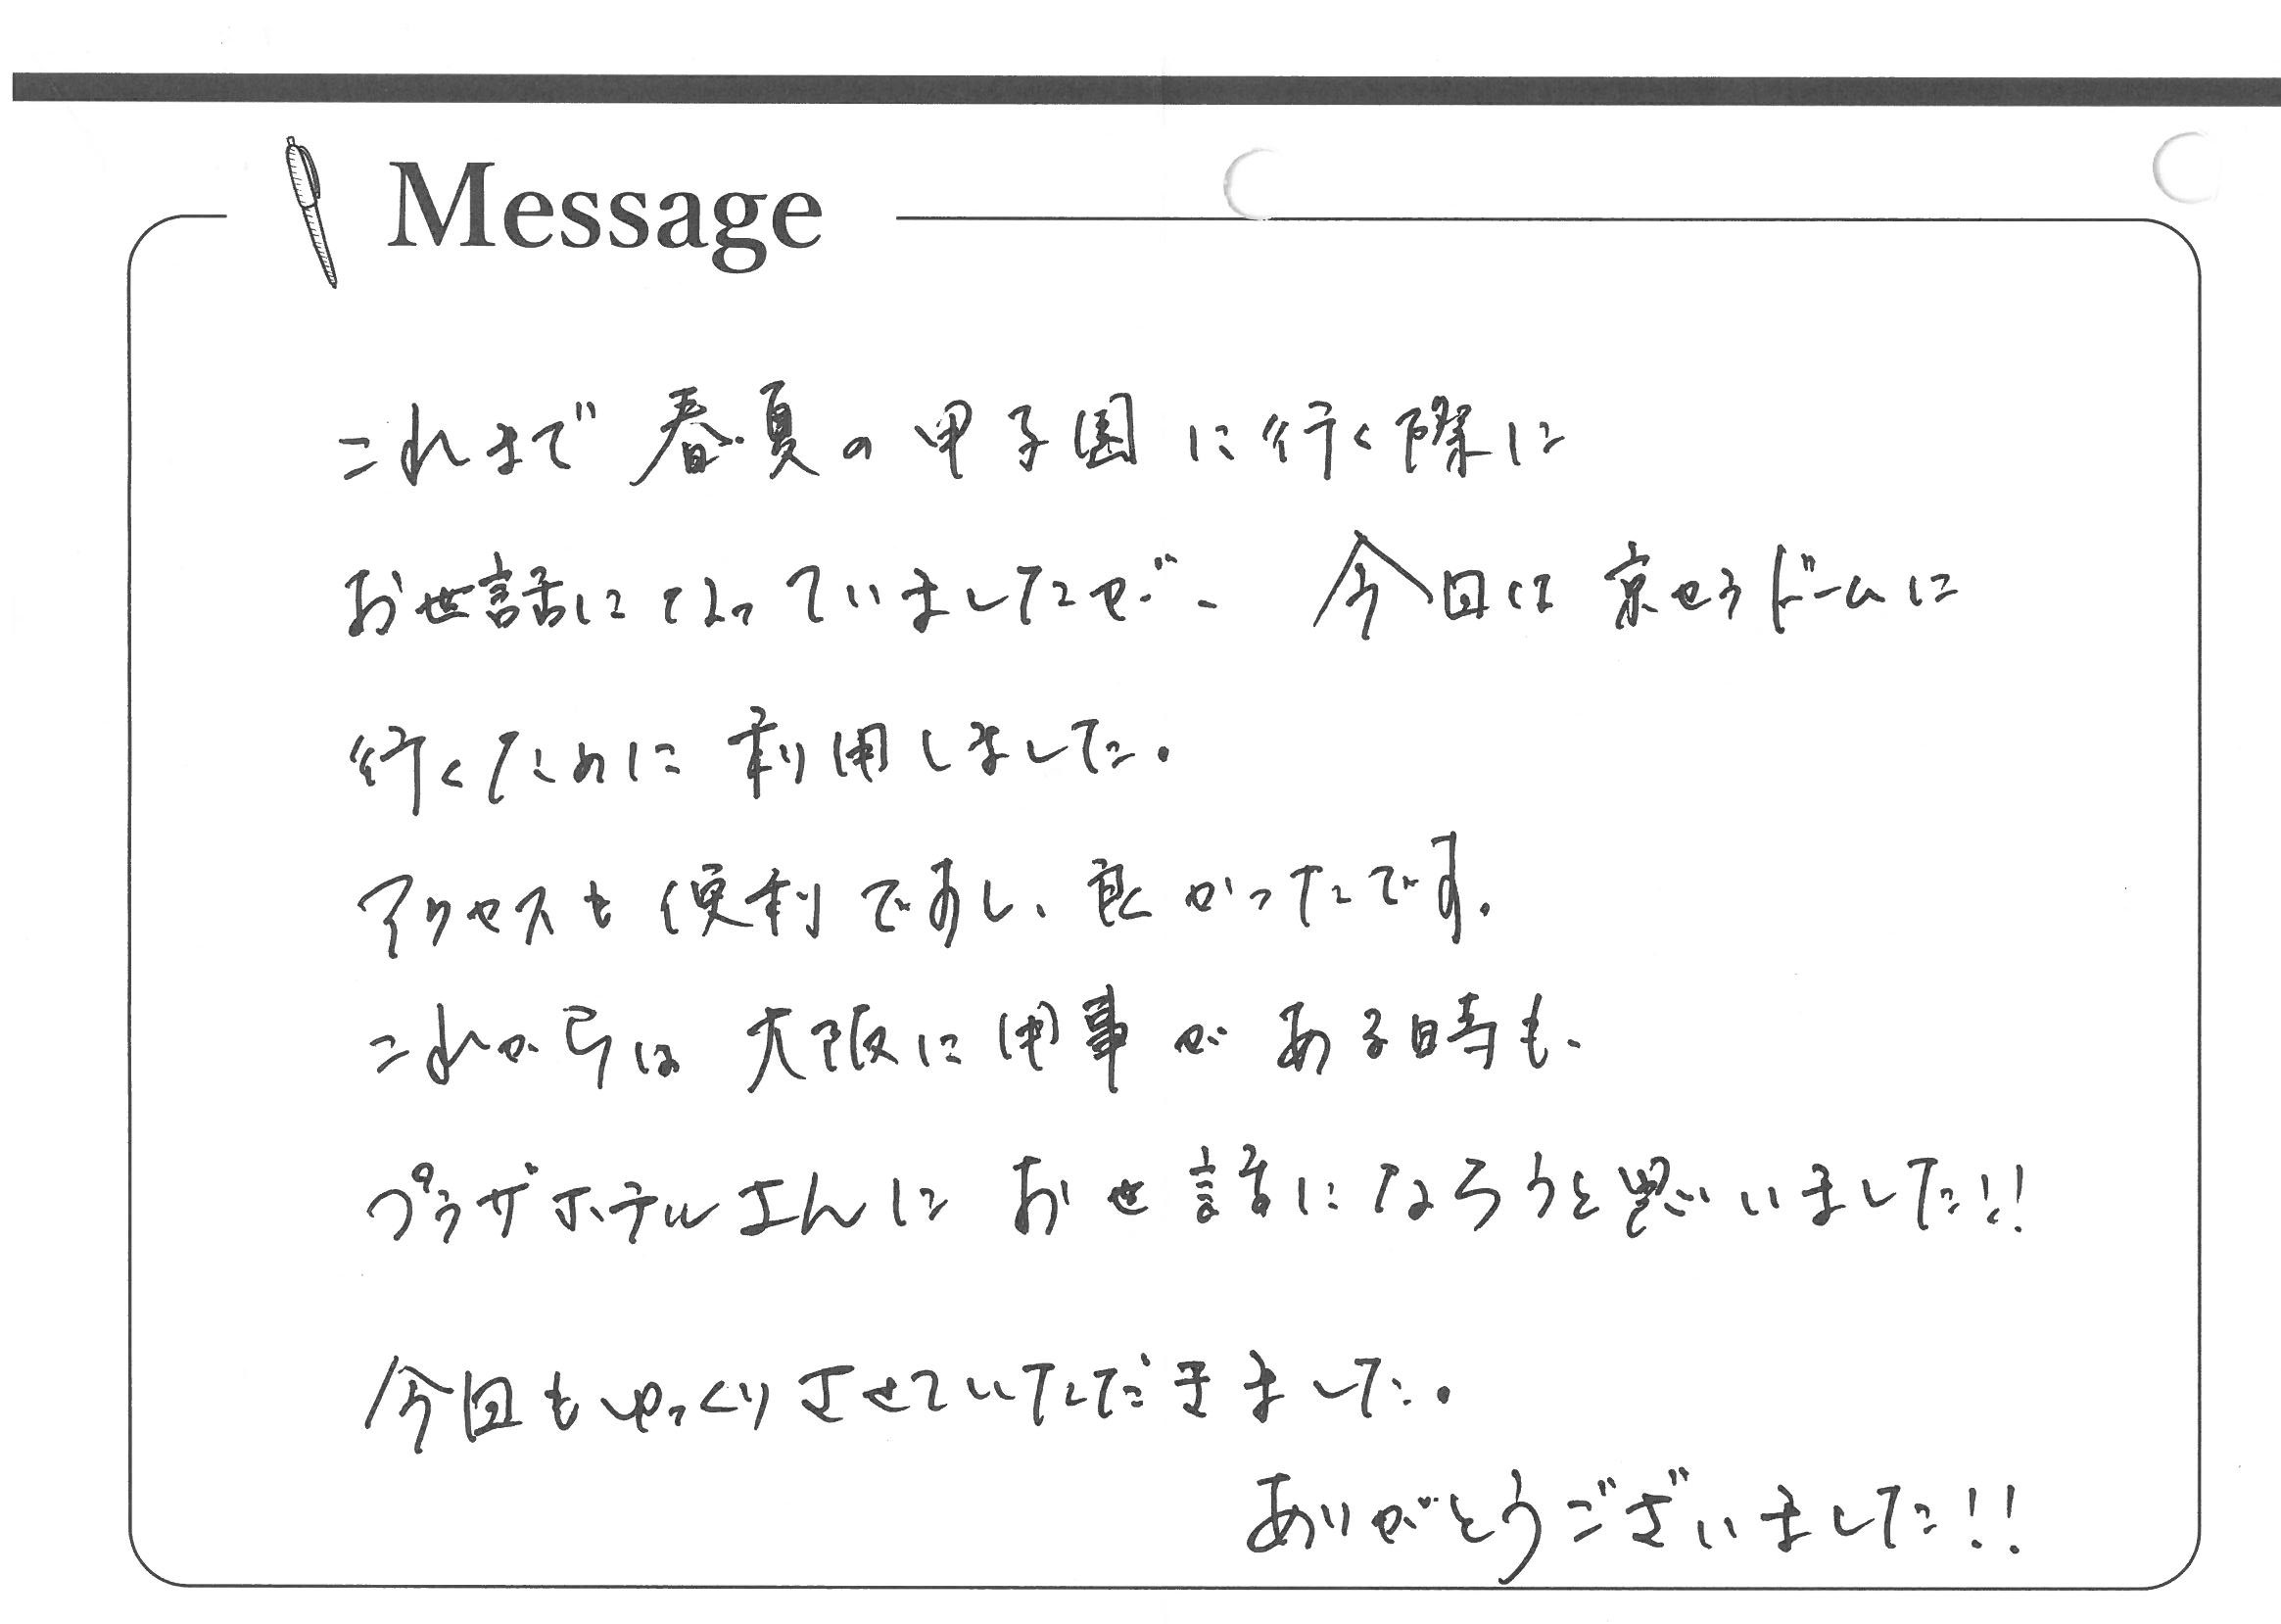 Message
これまで春・夏の甲子園に行く際に
お世話になっていましたが、今回は京セラドームに
行くために利用しました。
アクセスも便利ですし、良かったです。
これからは大阪に用事がある時も、
プラザホテルさんにお世話になろうと思いました!!
今回もゆっくりさせていただきました。
ありがとうございました!!